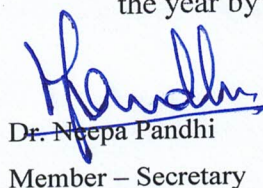 the year by
Pandhi
Dr. Neepa Pandhi
Member – Secretary